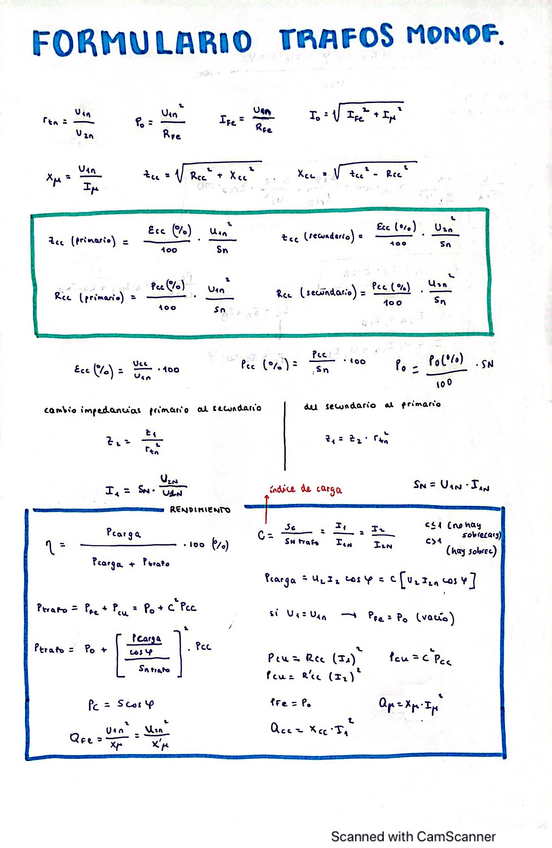 FORMULARIO TRAFOS MONOF.
rtn = U1n / U2n   P0 = U1n² / RFe   IFe = U1n / RFe   I0 = √(IFe² + Iμ²)
Xμ = U1n / Iμ   Zcc = √(Rcc² + Xcc²)   Xcc = √(Zcc² - Rcc²)
Zcc (primario) = Ecc (%) / 100 · U1n² / Sn   Zcc (secundario) = Ecc (%) / 100 · U2n² / Sn
Rcc (primario) = Pcc (%) / 100 · U1n² / Sn   Rcc (secundario) = Pcc (%) / 100 · U2n² / Sn
Ecc (%) = Ucc / U1n · 100   Pcc (%) = Pcc / Sn · 100   P0 = P0(%) / 100 · SN
cambio impedancias primario al secundario   del secundario al primario
Z2 = Z1 / rtn²   Z1 = Z2 · rtn²
I1 = SN · U2N / U1N   SN = U1N · I1N
índice de carga
RENDIMIENTO
η = Pcarga / Pcarga + Ptrafo · 100 (%)   C = Sc / SN trafo = I1 / I1N = I2 / I2N   c≤1 (no hay sobrecarg)
c>1 (hay sobrec)
Pcarga = U2 I2 cos φ = C [U2 I2n cos φ]
Ptrafo = PFe + Pcu = P0 + C² Pcc   si U1 = U1n → PFe = P0 (vacío)
Ptrafo = P0 + [ Pcarga / cos φ / Sn trafo ]² · Pcc   Pcu = Rcc (I1)²   Pcu = C² Pcc
Pcu = R'cc (I2)²
Pc = S cos φ   PFe = P0   Qμ = Xμ · Iμ²
QFe = U1n² / Xμ = U2n² / X'μ   Qcc = Xcc · I1²
Scanned with CamScanner